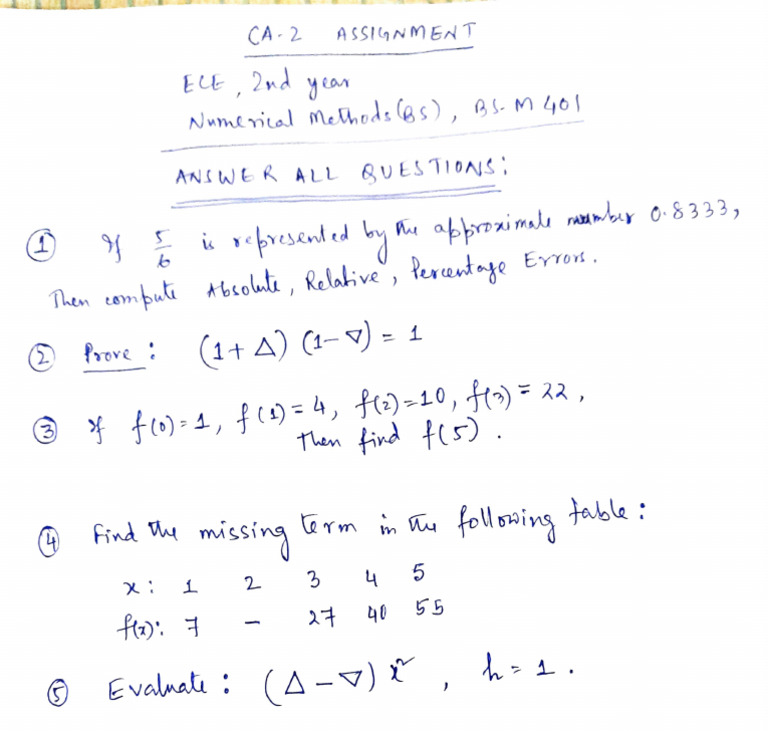 CA-2 ASSIGNMENT
ECE, 2nd year
Numerical Methods (BS), BS-M 401
ANSWER ALL QUESTIONS:
① If 5/6 is represented by the approximate number 0.8333,
Then compute Absolute, Relative, Percentage Errors.
② Prove: (1+Δ) (1-∇) = 1
③ If f(0)=1, f(1)=4, f(2)=10, f(3)=22,
Then find f(5).
④ Find the missing term in the following table:
x: 1 2 3 4 5
f(x): 7 - 27 40 55
⑤ Evaluate: (Δ-∇) x², h=1.